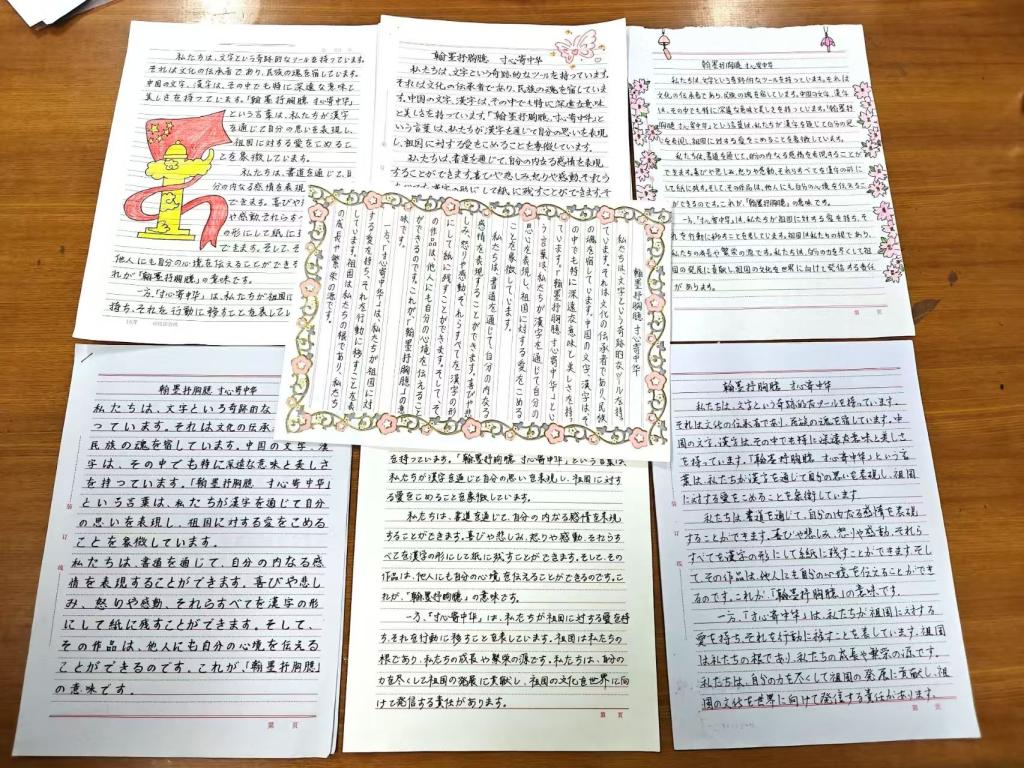 私たちは、文字という奇跡的なツールを持っています。
それは文化の伝承者であり、民族の魂を宿しています。
中国の文字、漢字は、その中でも特に深遠な意味と
美しさを持っています。「翰墨抒胸臆 寸心寄中华」
という言葉は、私たちが漢字
を通じて自分の思いを表現し、
祖国に対する愛をこめること
を象徴しています。
私たちは、書道を通じて、自
分の内なる感情を表現
できます。喜びや
や感動、それらすべ
の形にして紙に
できます。そして、そ
他人にも自分の心境を伝えることができる
れが「翰墨抒胸臆」の意味です。
一方、「寸心寄中华」は、私たちが祖国に
持ち、それを行動に移すことを表してい
翰墨抒胸臆 寸心寄中华
私たちは、文字という奇跡的なツールを持っています。
それは文化の伝承者であり、民族の魂を宿していま
す。中国の文字、漢字は、その中でも特に深遠な意味
と美しさを持っています。「翰墨抒胸臆 寸心寄中华」
という言葉は、私たちが漢字を通じて自分の思いを表現
し、祖国に対する愛をこめることを象徴しています。
私たちは、書道を通じて、自分の内なる感情を表現
することができます。喜びや悲しみ、怒りや感動、それら
すべてを漢字の形にして紙に残すことができます。そ
翰墨抒胸臆 寸心寄中华
私たちは、文字という奇跡的なツールを持っています。それは
文化の伝承者であり、民族の魂を宿しています。中国の文字、漢字
は、その中でも特に深遠な意味と美しさを持っています。「翰墨抒
胸臆 寸心寄中华」という言葉は、私たちが漢字を通じて自分の思
いを表現し、祖国に対する愛をこめることを象徴しています。
私たちは、書道を通じて、自分の内なる感情を表現することが
できます。喜びや悲しみ、怒りや感動、それらすべてを漢字の形に
して紙に残すことができます。そして、その作品は、他人にも自分の心境を伝えるこ
とができるのです。これが、「翰墨抒胸臆」の意味です。
一方、「寸心寄中华」は、私たちが祖国に対する愛を持ち、そ
れを行動に移すことを表しています。祖国は私たちの根であり、
私たちの成長や繁栄の源です。私たちは、自分の力を尽くして祖
国の発展に貢献し、祖国の文化を世界に向けて発信する責任
があります。
第 頁
翰墨抒胸臆 寸心寄中华
私たちは、文字という奇跡的なツールを持っ
ています。それは文化の伝承者であり、民族
の魂を宿しています。中国の文字、漢字は、そ
の中でも特に深遠な意味と美しさを持っ
ています。「翰墨抒胸臆 寸心寄中华」とい
う言葉は、私たちが漢字を通じて自分の
思いを表現し、祖国に対する愛をこめる
ことを象徴しています。
私たちは、書道を通じて、自分の内なる
感情を表現することができます。喜びや悲
しみ、怒りや感動、それらすべてを漢字の形
にして紙に残すことができます。そして、そ
の作品は、他人にも自分の心境を伝えること
ができるのです。これが、「翰墨抒胸臆」の意
味です。
一方、「寸心寄中华」は、私たちが祖国に対
する愛を持ち、それを行動に移すことを表し
ています。祖国は私たちの根であり、私たち
の成長や繁栄の源です。
翰墨抒胸臆 寸心寄中华
私たちは、文字という奇跡的な
っています。それは文化の伝承
民族の魂を宿しています。中国の文字、漢字
は、その中でも特に深遠な意味と美しさ
を持っています。「翰墨抒胸臆 寸心寄中华」
という言葉は、私たちが漢字を通じて自分
の思いを表現し、祖国に対する愛をこめる
ことを象徴しています。
私たちは、書道を通じて、自分の内なる感
情を表現することができます。喜びや悲し
み、怒りや感動、それらすべてを漢字の形
にして紙に残すことができます。そして、
その作品は、他人にも自分の心境を伝える
ことができるのです。これが、「翰墨抒胸臆」
の意味です。
第 頁
を持っています。「翰墨抒胸臆 寸心寄中华」という言葉は、
私たちが漢字を通じて自分の思いを表現し、祖国に対す
る愛をこめることを象徴しています。
私たちは、書道を通じて、自分の内なる感情を表現
することができます。喜びや悲しみ、怒りや感動、それらす
べてを漢字の形にして紙に残すことができます。そして、その
作品は、他人にも自分の心境を伝えることができるのです。こ
れが、「翰墨抒胸臆」の意味です。
一方、「寸心寄中华」は、私たちが祖国に対する愛を持
ち、それを行動に移すことを表しています。祖国は私たちの
根であり、私たちの成長や繁栄の源です。私たちは、自分の
力を尽くして祖国の発展に貢献し、祖国の文化を世界に向
けて発信する責任があります。
第 頁
翰墨抒胸臆 寸心寄中华
私たちは、文字という奇跡的なツールを持っています。
それは文化の伝承者であり、民族の魂を宿しています。中
国の文字、漢字は、その中でも特に深遠な意味と美しさ
を持っています。「翰墨抒胸臆 寸心寄中华」という言
葉は、私たちが漢字を通じて自分の思いを表現し、祖国
に対する愛をこめることを象徴しています
私たちは書道を通じて、自分の内なる感情を表現
することができます。喜びや悲しみ、怒りや感動、それら
すべてを漢字の形にして紙に残すことができます。そし
て、その作品は、他人にも自分の心境を伝えることができ
るのです。これが、「翰墨抒胸臆」の意味です。
一方、「寸心寄中华」は、私たちが祖国に対する
愛を持ち、それを行動に移すことを表しています。祖国
は私たちの根であり、私たちの成長や繁栄の源です。
私たちは、自分の力を尽くして祖国の発展に貢献し、祖
国の文化を世界に向けて発信する責任があります。
第 頁